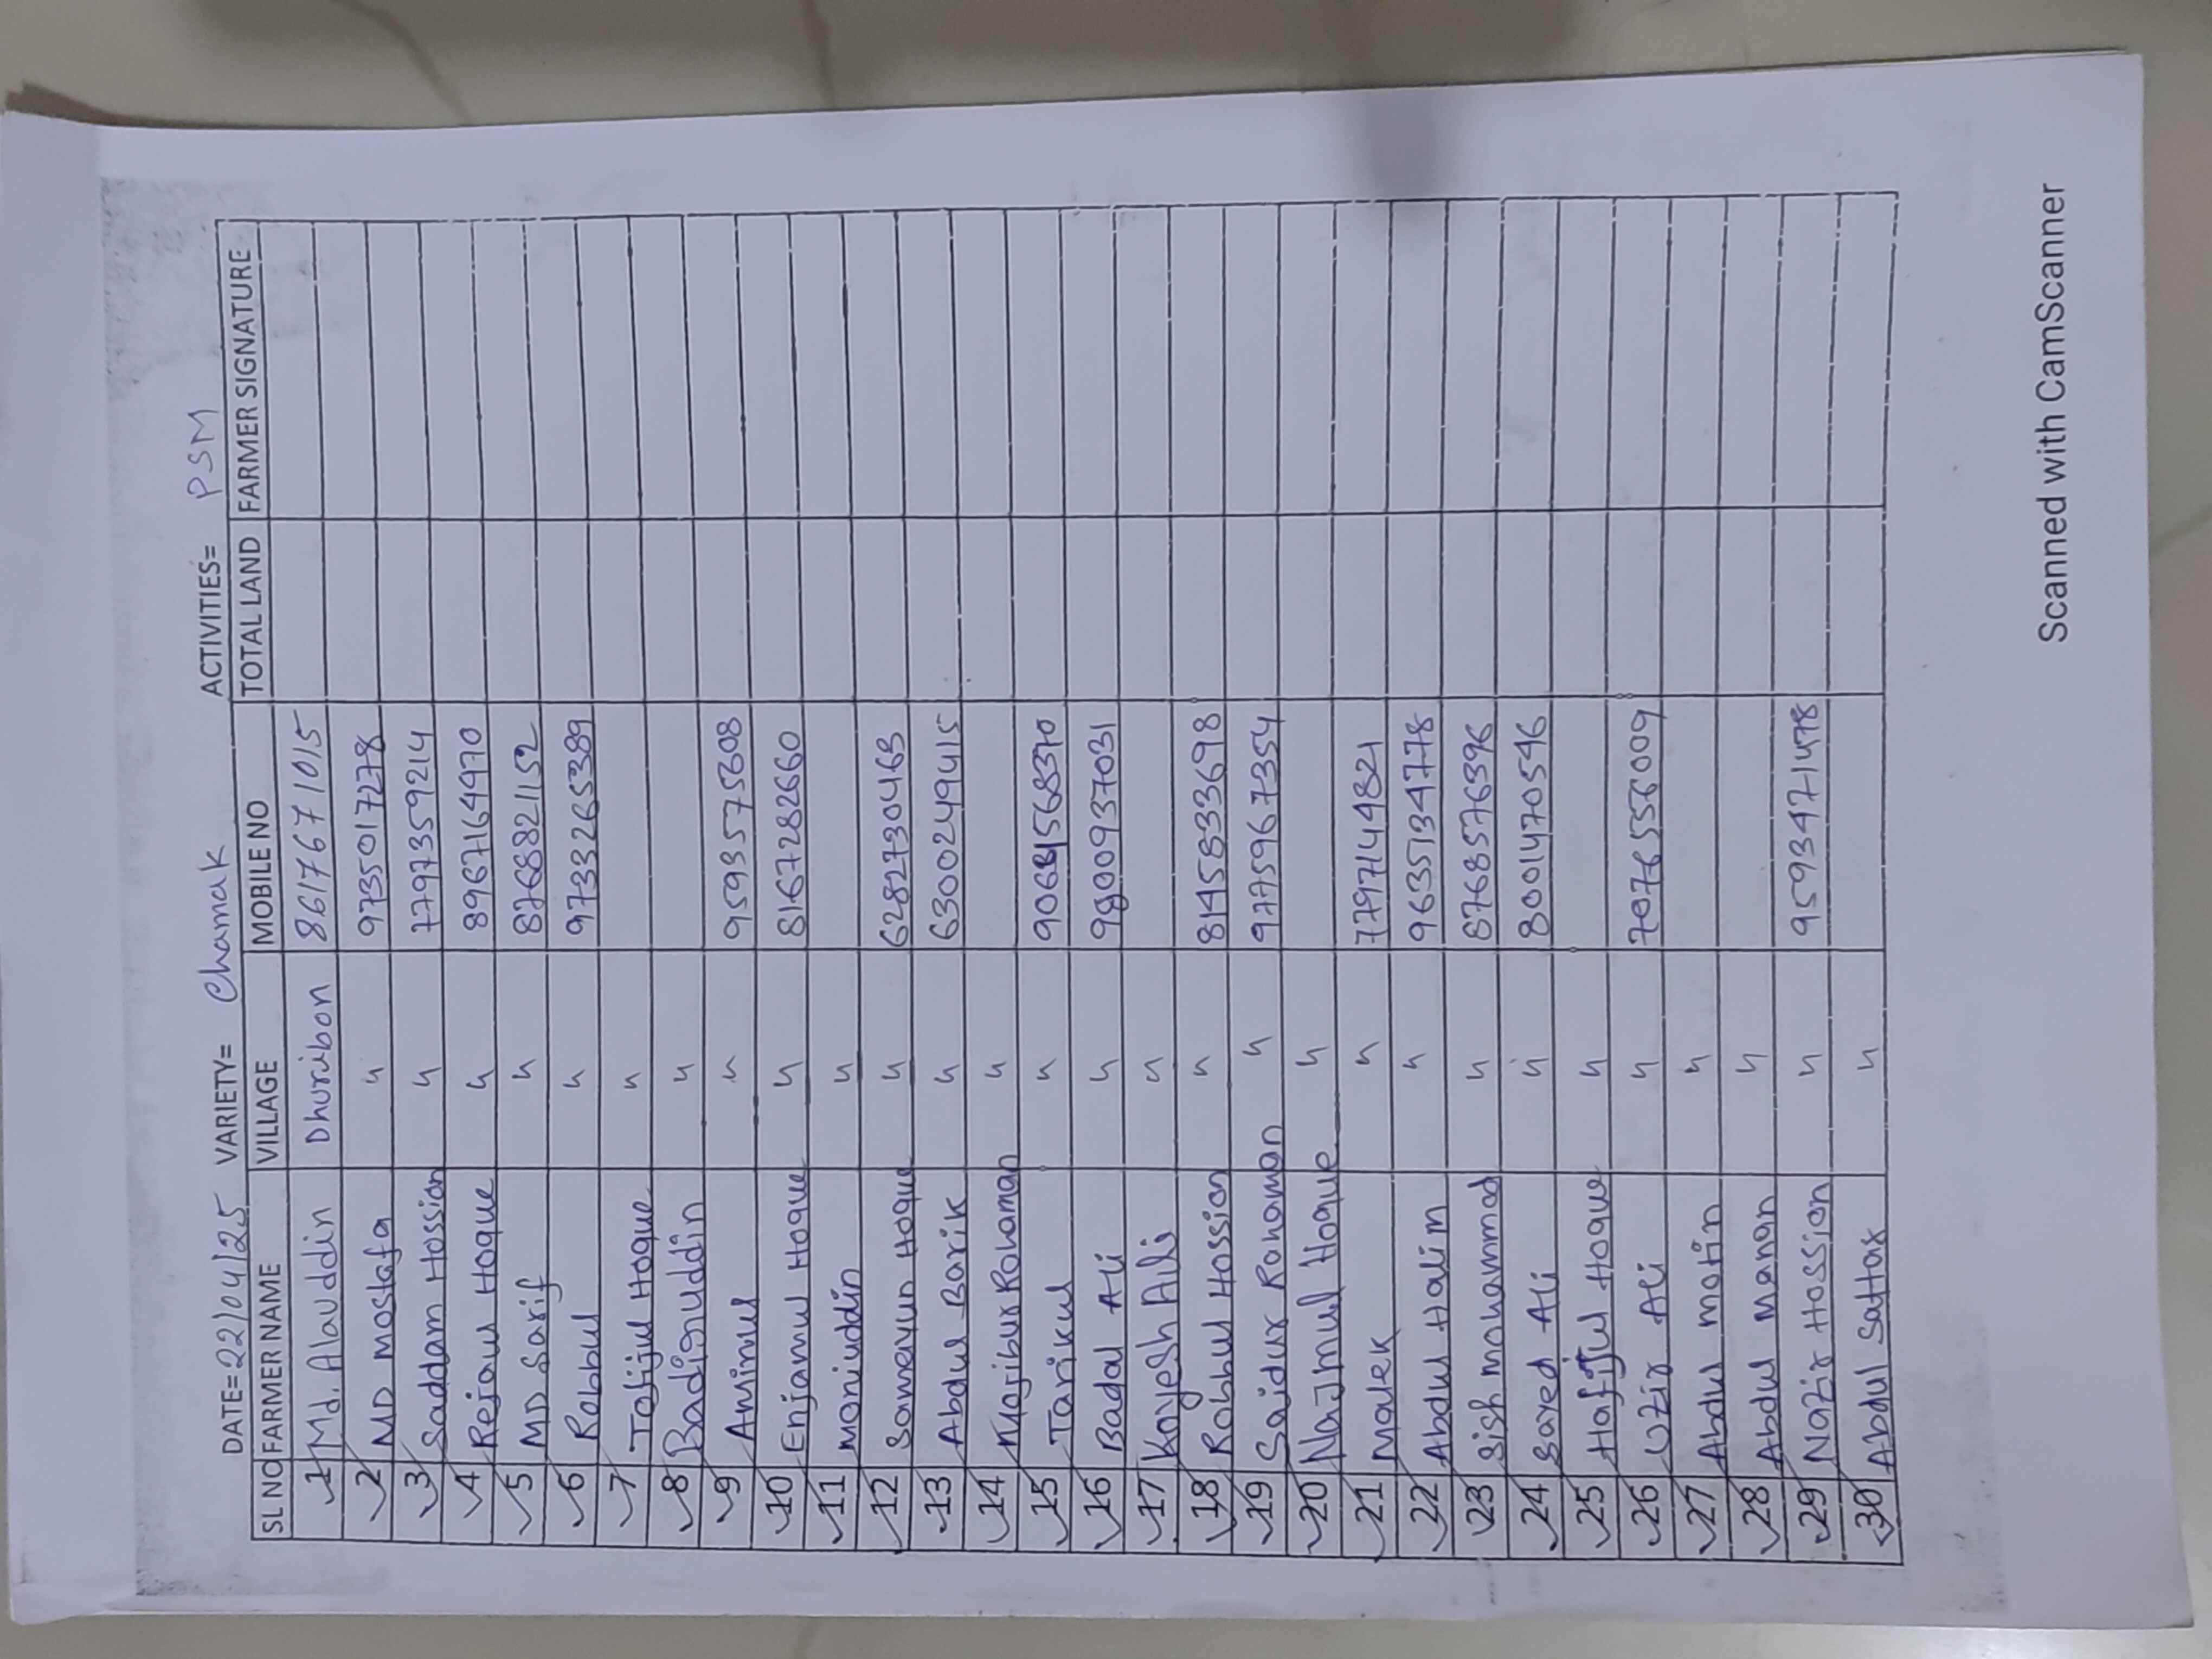 DATE=22/04/25 VARIETY= Chamak ACTIVITIES= PSM
SL NO FARMER NAME VILLAGE MOBILE NO TOTAL LAND FARMER SIGNATURE
1 Md. Alauddin Dhuribon 8617671015
2 MD Mostafa " 9735017278
3 Saddam Hossion " 7797359214
4 Rejaul Hoque " 8967164970
5 MD Sarif " 8768821152
6 Robbul " 9733265389
7 Tofijul Hoque "
8 Badiouddin "
9 Aminul " 9593575608
10 Enjamul Hoque " 8167282660
11 Moniuddin "
12 Someyun Hoque " 6282730463
13 Abdul Barik " 6300249415
14 Mojibur Rohaman "
15 Tarikul " 90681568370
16 Badal Ali " 9800937031
17 Koyesh Ali "
18 Robbul Hossion " 8145833698
19 Saidur Rohoman " 9775967354
20 Najmul Hoque "
21 Malek " 7797144821
22 Abdul Halim " 9635134778
23 Sish mohammad " 8768576396
24 Sayed Ali " 8001470546
25 Hafijul Hoque "
26 Uzir Ali " 7076558009
27 Abdul motin "
28 Abdul Manan "
29 Nazir Hossion " 9593471478
30 Abdul Sattar "
Scanned with CamScanner